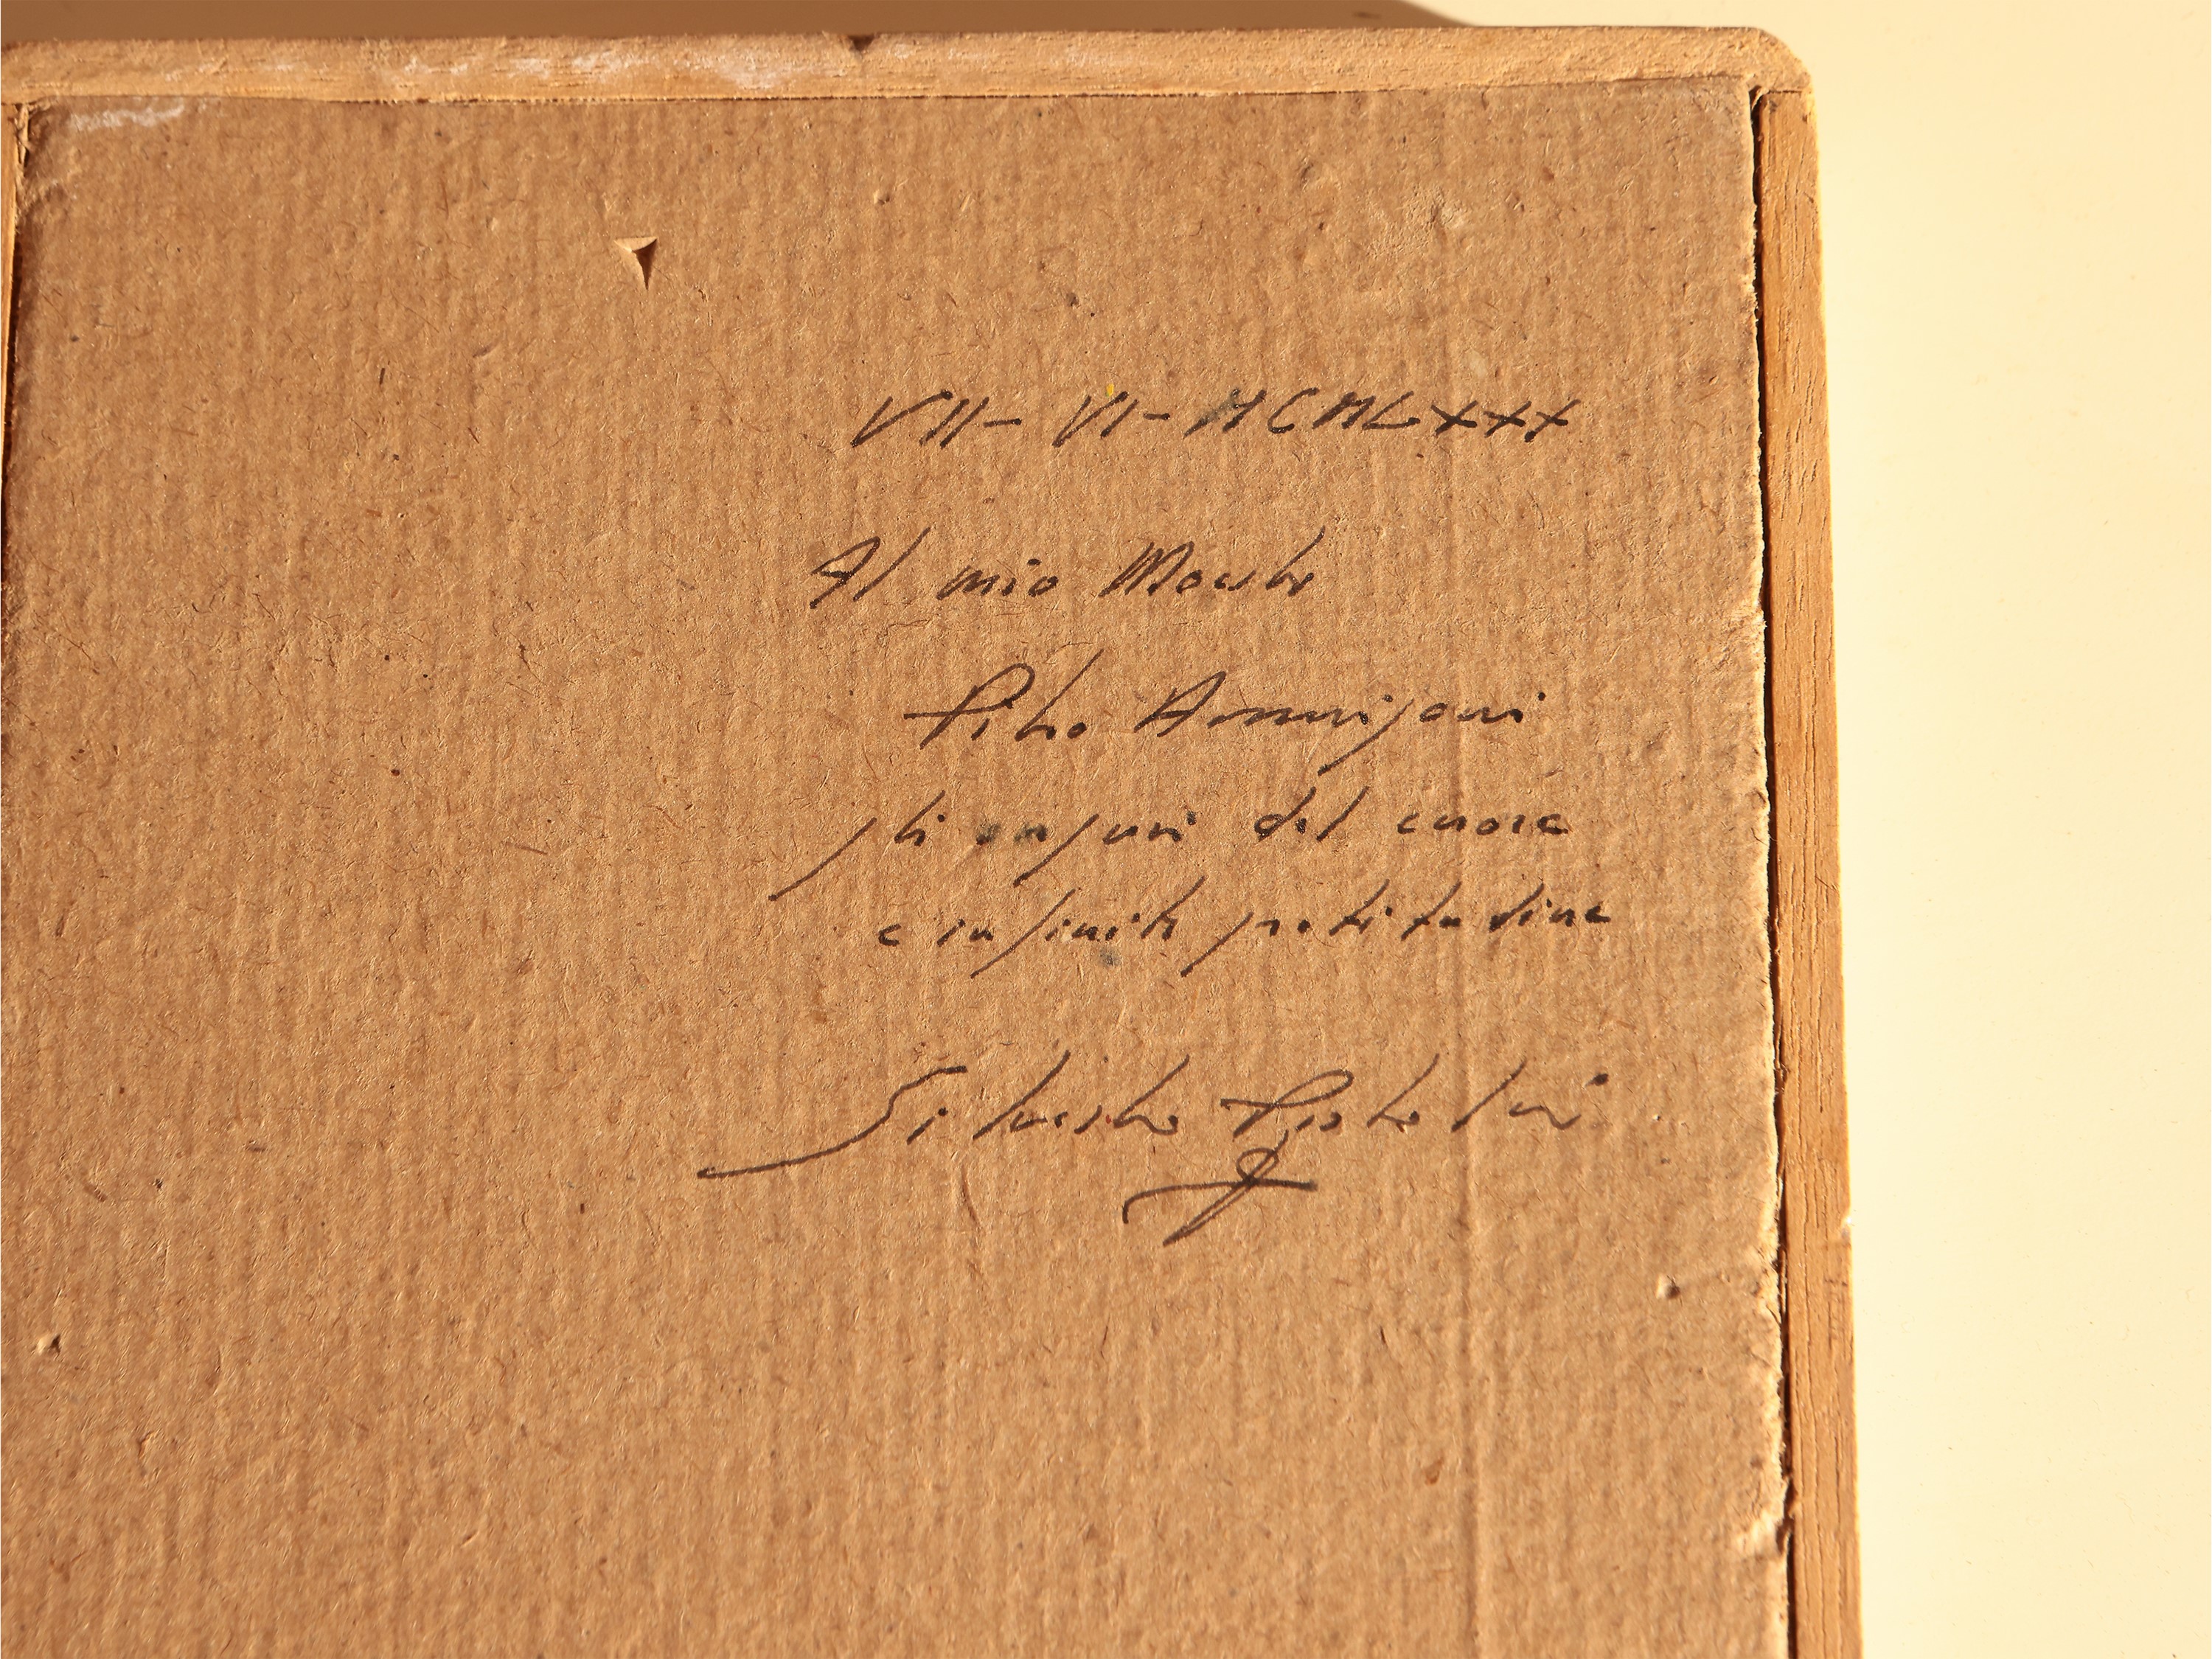 VII - VI - MCMLXXX
Al mio Maestro
Pietro Annigoni
gli auguri del cuore
e infinita gratitudine
Silvestro Pistolesi